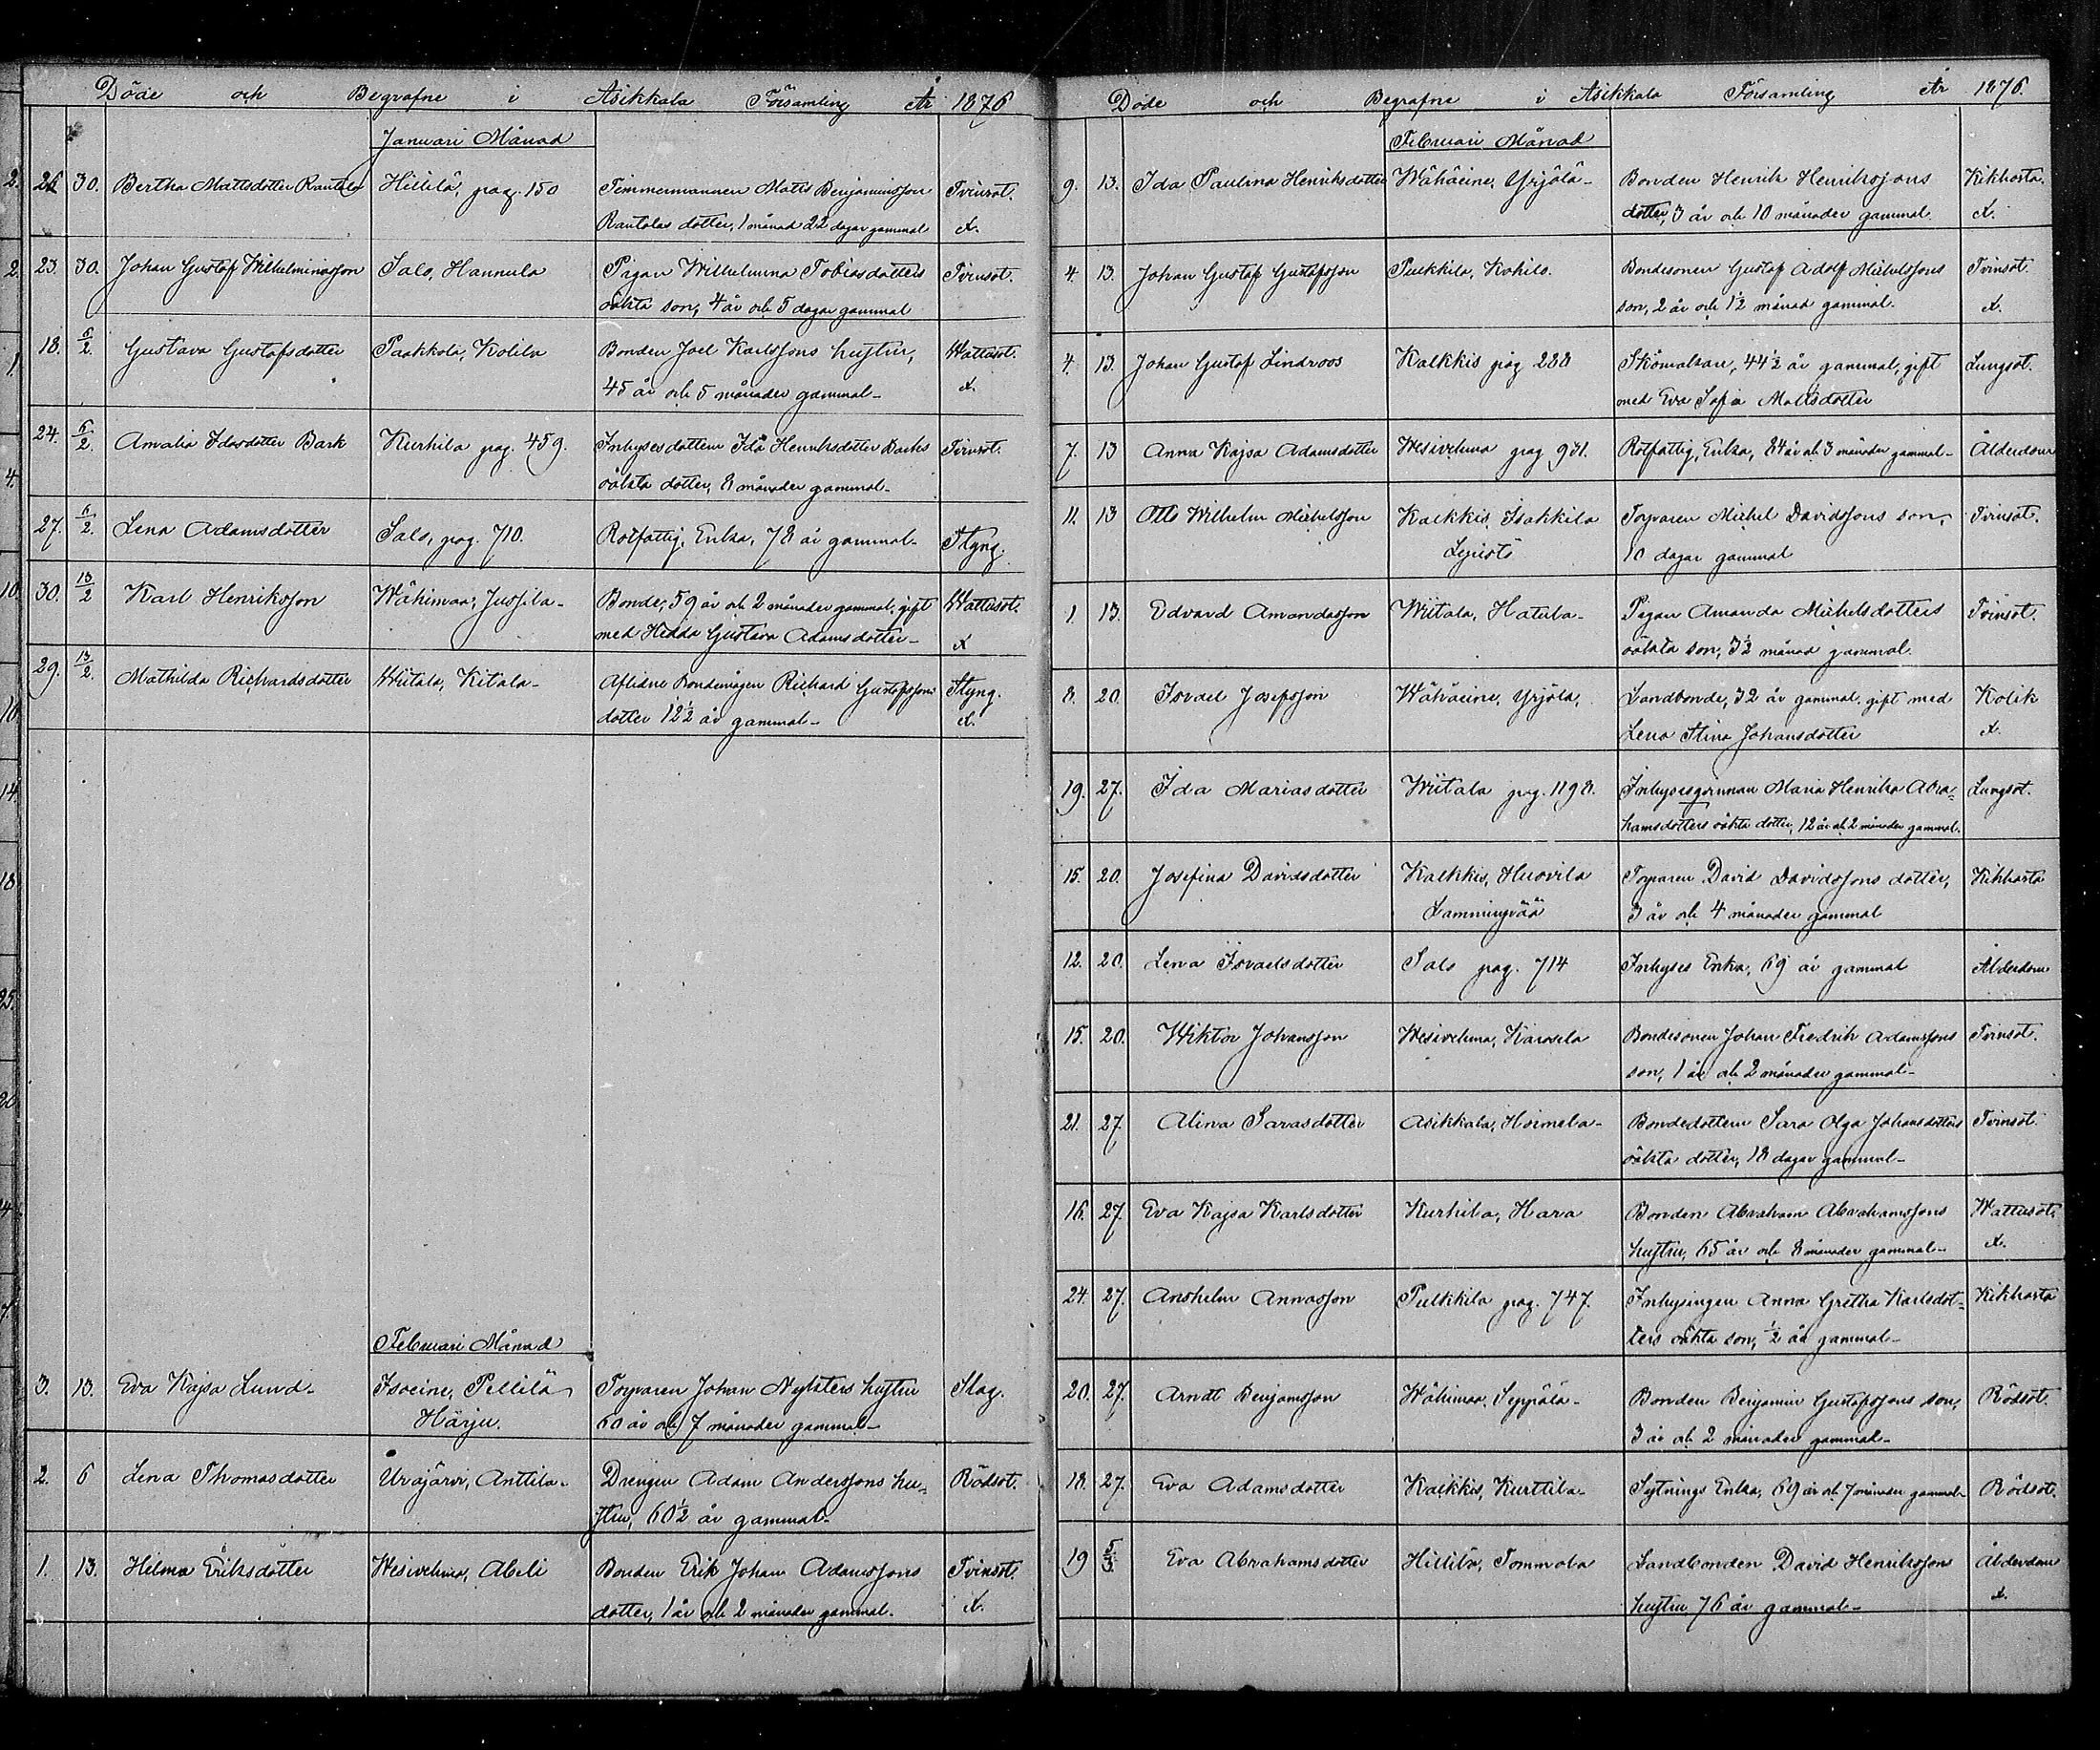 Döde och Begrafne i Asikkala Församling År 1876
Januari Månad
26 30. Bertha Mattsdotter Rantala Hillilä, pag. 150 Timmermannen Matts Benjaminsson Tvinsot.
Rantalas dotter, 1 månad 22 dagar gammal x.
23. 30. Johan Gustaf Wilhelminasson Salo, Hannula Pigan Wilhelmina Tobiasdotters Tvinsot.
oäkta son, 4 år och 5 dagar gammal
18. 6/2. Gustava Gustafsdotter Paakkola, Kolila Bonden Joel Karlssons hustru, Wattusot.
45 år och 5 månader gammal x.
24. 6/2. Amalia Idasdotter Bark Kurhila pag. 459. Inhysesdottern Ida Henriksdotter Barks Tvinsot.
oäkta dotter, 8 månader gammal
27. 6/2. Lena Adamsdotter Salo, pag. 710. Rotfattig, Enka, 78 år gammal Styng.
30. 13/2 Karl Henriksson Wähimaa, Jussila Bonde, 59 år och 2 månader gammal, gift Wattusot.
med Hedda Gustava Adamsdotter x
29. 13/2. Mathilda Richardsdotter Wiitala, Kitala Aflidne Bondemågen Richard Gustafssons Styng.
dotter 12½ år gammal x.
Februari Månad
3. 13. Eva Kajsa Lund Isoeine, Pellilä Torparen Johan Nylsters hustru Slag.
Härju. 60 år och 7 månader gammal
2. 6 Lena Thomasdotter Urajärvi, Anttila Drengen Adam Anderssons hu-
Rödsot.
stru, 60½ år gammal
1. 13. Helma Eriksdotter Wesivehma, Abeli Bonden Erik Johan Adamssons Tvinsot.
dotter, 1 år och 2 månader gammal. x.
Döde och Begrafne i Asikkala Församling År 1876.
Februari Månad
9. 13. Ida Paulina Henriksdotter Wähäeine, Yrjölä Bonden Henrik Henrikssons Kikhosta.
dotter, 3 år och 10 månader gammal. x.
4. 13. Johan Gustaf Gustafsson Pulkkila, Kohilo. Bondesonen Gustaf Adolf Michelssons Tvinsot.
son, 2 år och 1½ månad gammal. x.
4. 13. Johan Gustaf Lindroos Kalkkis pag 288 Skomakare, 44½ år gammal, gift Lungsot.
med Eva Sofia Mattsdotter
7. 13 Anna Kajsa Adamsdotter Wesivehma pag 931. Rotfattig, Enka, 84 år och 3 månader gammal Ålderdom
11. 13 Otto Wilhelm Michelsson Kalkkis, Isakkila Torparen Michel Davidssons son, Tvinsot.
10 dagar gammal
1. 13. Edvard Amandasson Wiitala, Hatula Pigan Amanda Michelsdotters Tvinsot.
oäkta son, 3½ månad gammal.
8. 20. Israel Josefsson Wähäeine, Yrjölä, Landbonde, 32 år gammal, gift med Kolik
Lena Stina Johansdotter x.
19. 27. Ida Mariasdotter Wiitala pag. 1198. Inhyseqvinnan Maria Henrika Abra- Lungsot.
hamsdotters oäkta dotter, 12 år och 2 månader gammal.
15. 20. Josefina Davidsdotter Kalkkis, Huovila Torparen David Davidssons dotter, Kikhosta
Lammingpää 3 år och 4 månader gammal
12. 20. Lena Israelsdotter Salo pag. 714 Inhyses Enka, 69 år gammal Ålderdom
15. 20. Wiktor Johansson Wesivehma, Karosela Bondesonen Johan Fredrik Adamssons Tvinsot.
son, 1 år och 2 månader gammal
21. 27. Alina Sarasdotter Asikkala, Hoimela Bondedottern Sara Olga Johansdotters Tvinsot.
oäkta dotter, 18 dagar gammal
16. 27. Eva Kajsa Karlsdotter Kurhila, Hara Bonden Abraham Abrahamssons Wattusot.
hustru, 65 år och 8 månader gammal x.
24. 27. Anshelm Annasson Pulkkila pag. 747. Inhysingen Anna Gretha Karlsdot- Kikhosta
ters oäkta son, ½ år gammal
20. 27. Arndt Benjamsson Wähimaa, Seppälä Bonden Benjamin Gustafssons son, Rödsot.
3 år och 2 månader gammal
18. 27. Eva Adamsdotter Kalkkis, Kurttila Sytnings Enka, 69 år och 7 månader gammal Rödsot.
19 5/3. Eva Abrahamsdotter Hillilä, Tommola Landbonden David Henrikssons Ålderdom
hustru 76 år gammal x.